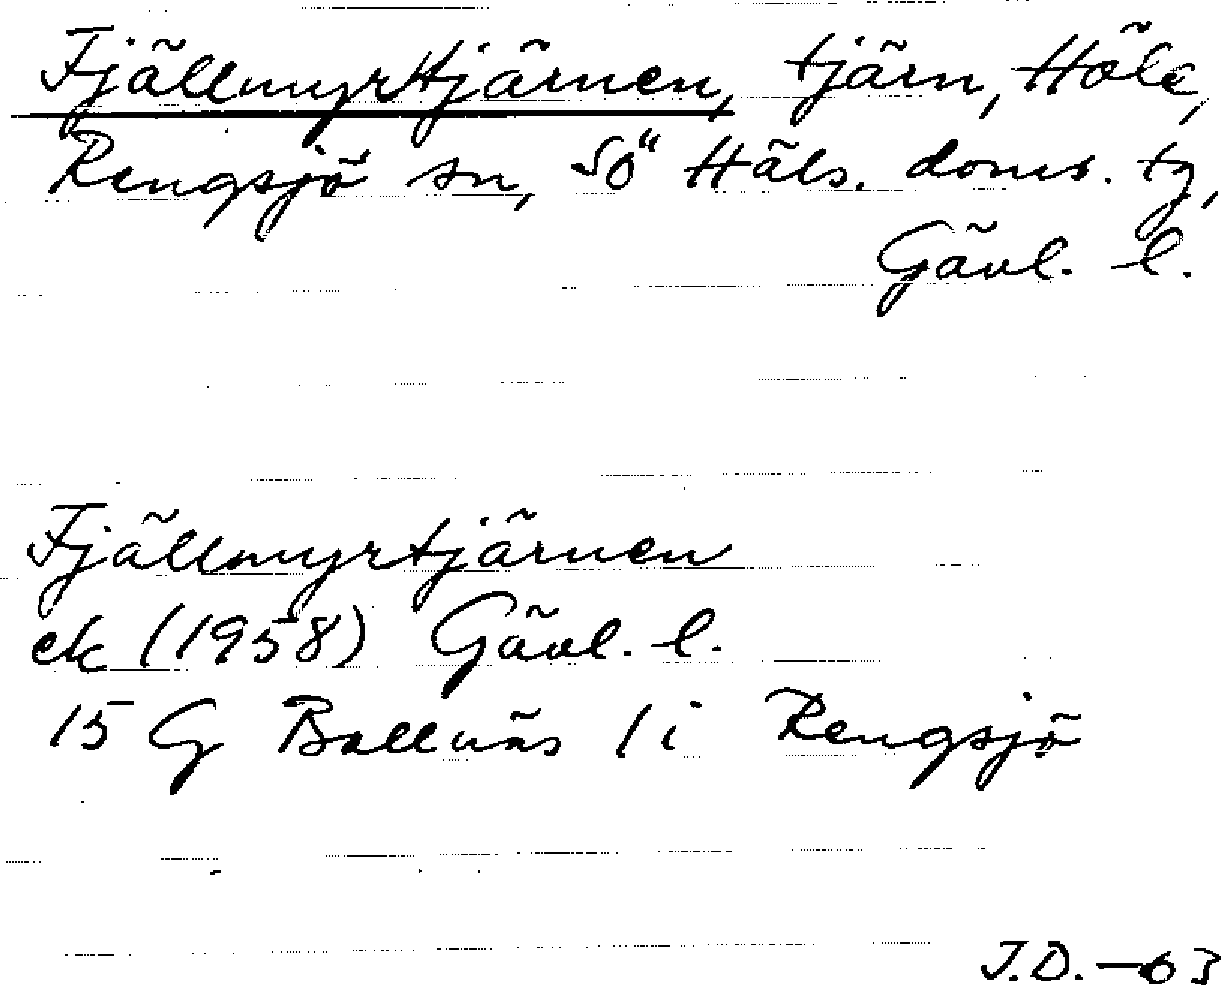 Fjällmyrtjärnen, tjärn, Höle,
Rengsjö sn, SÖ Häls. doms. tg,
Gävl. l.
Fjällmyrtjärnen
ek (1958) Gävl. l.
15 G Bollnäs 1 i Rengsjö
J.D. -63